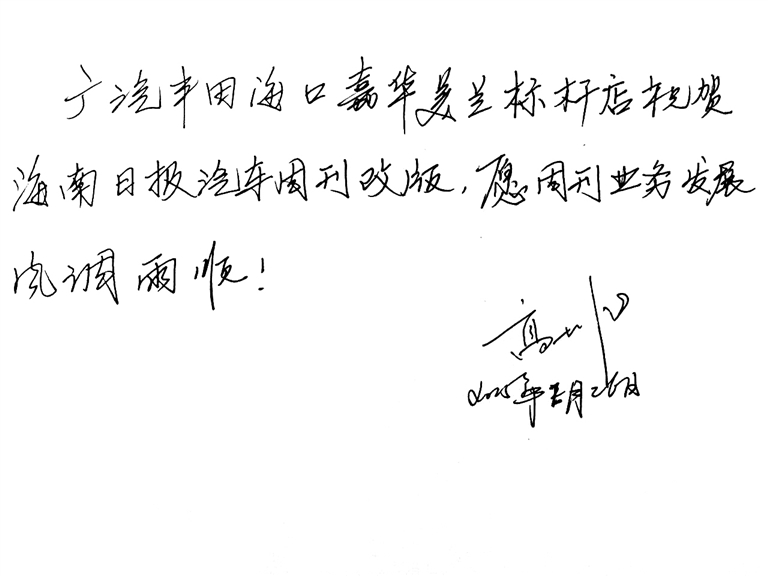 广汽丰田海口嘉华美兰标杆店祝贺
海南日报汽车周刊改版,愿周刊业务发展
风调雨顺!
高
年 月26日